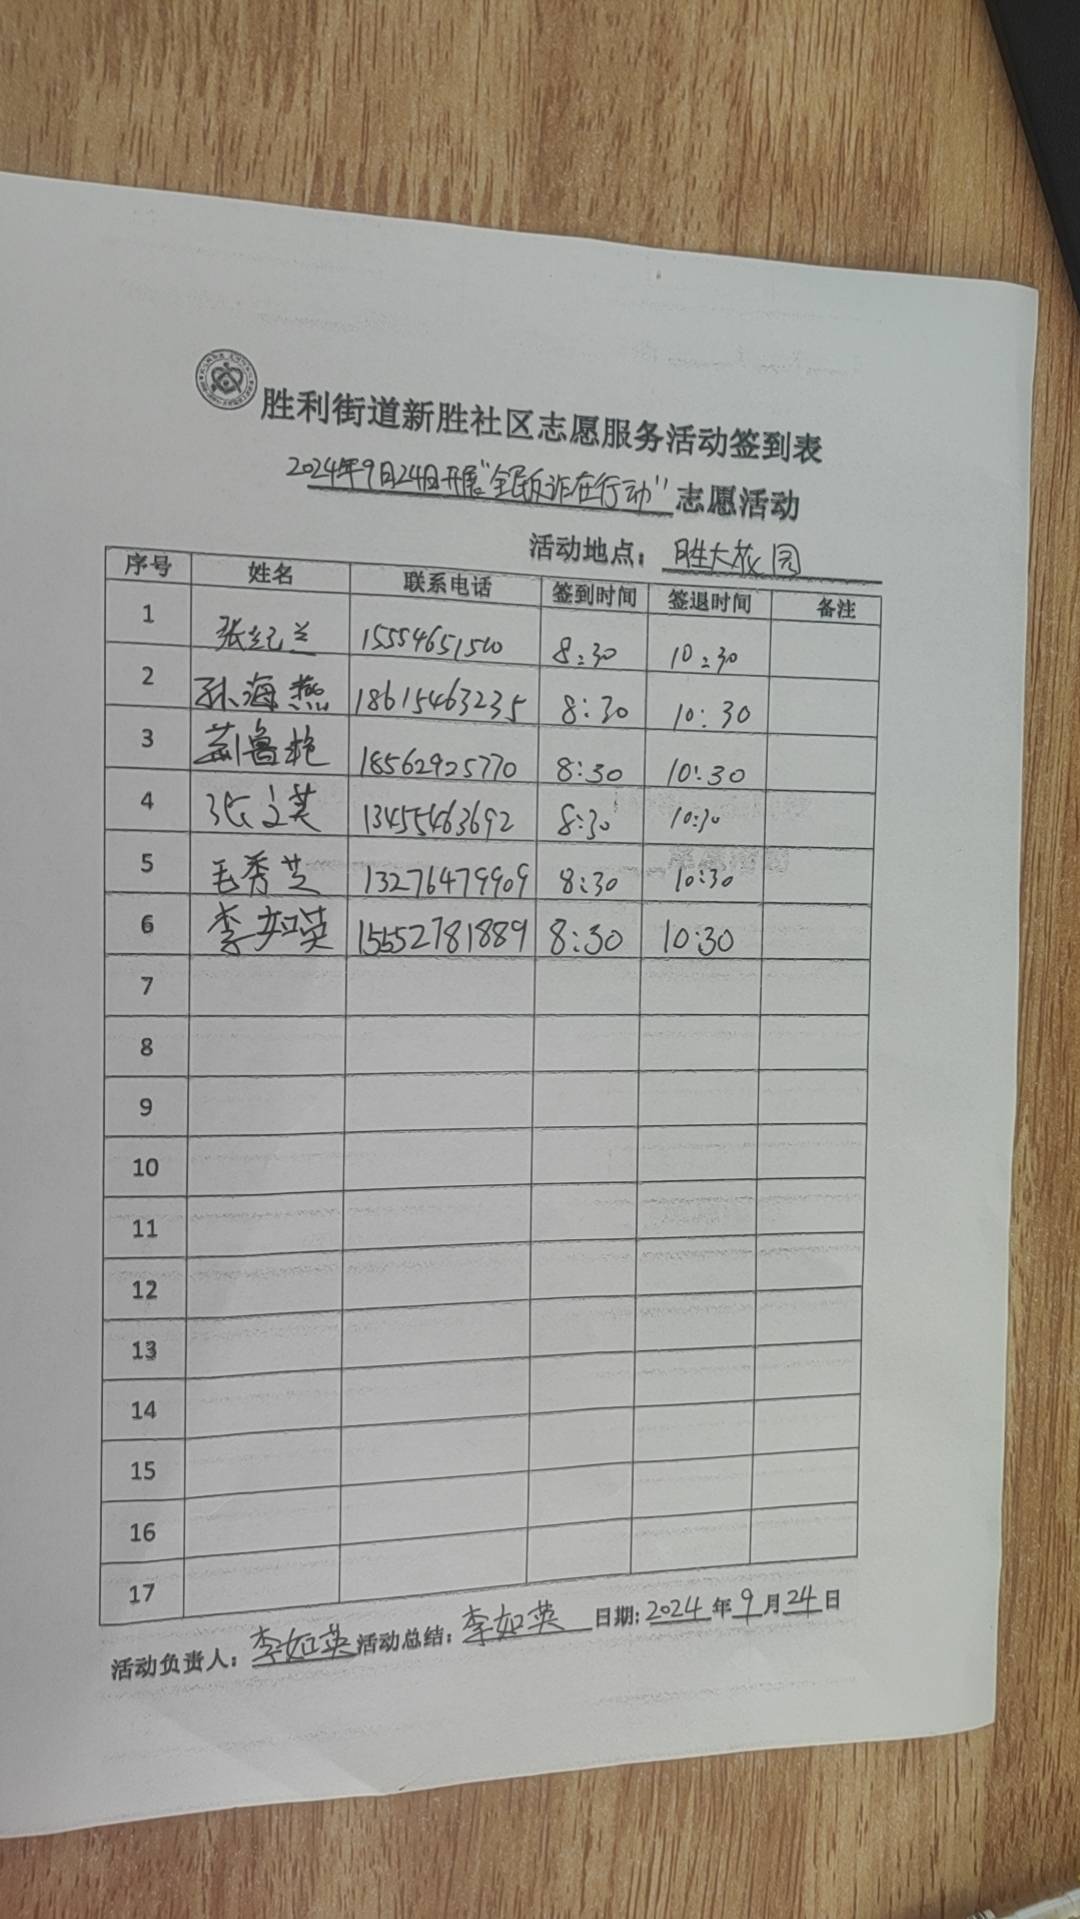 胜利街道新胜社区志愿服务活动签到表
2024年9月24日开展"全民反诈在行动"志愿活动
活动地点：胜大花园
序号 姓名 联系电话 签到时间 签退时间 备注
1 张纪兰 15554651500 8:30 10:30
2 孙海燕 18615463235 8:30 10:30
3 鲁艳 18562925770 8:30 10:30
4 张文英 13455463692 8:30 10:30
5 毛秀芝 13276479909 8:30 10:30
6 李如英 15552781889 8:30 10:30
7
8
9
10
11
12
13
14
15
16
17
活动负责人：李如英 活动总结：李如英 日期：2024年9月24日